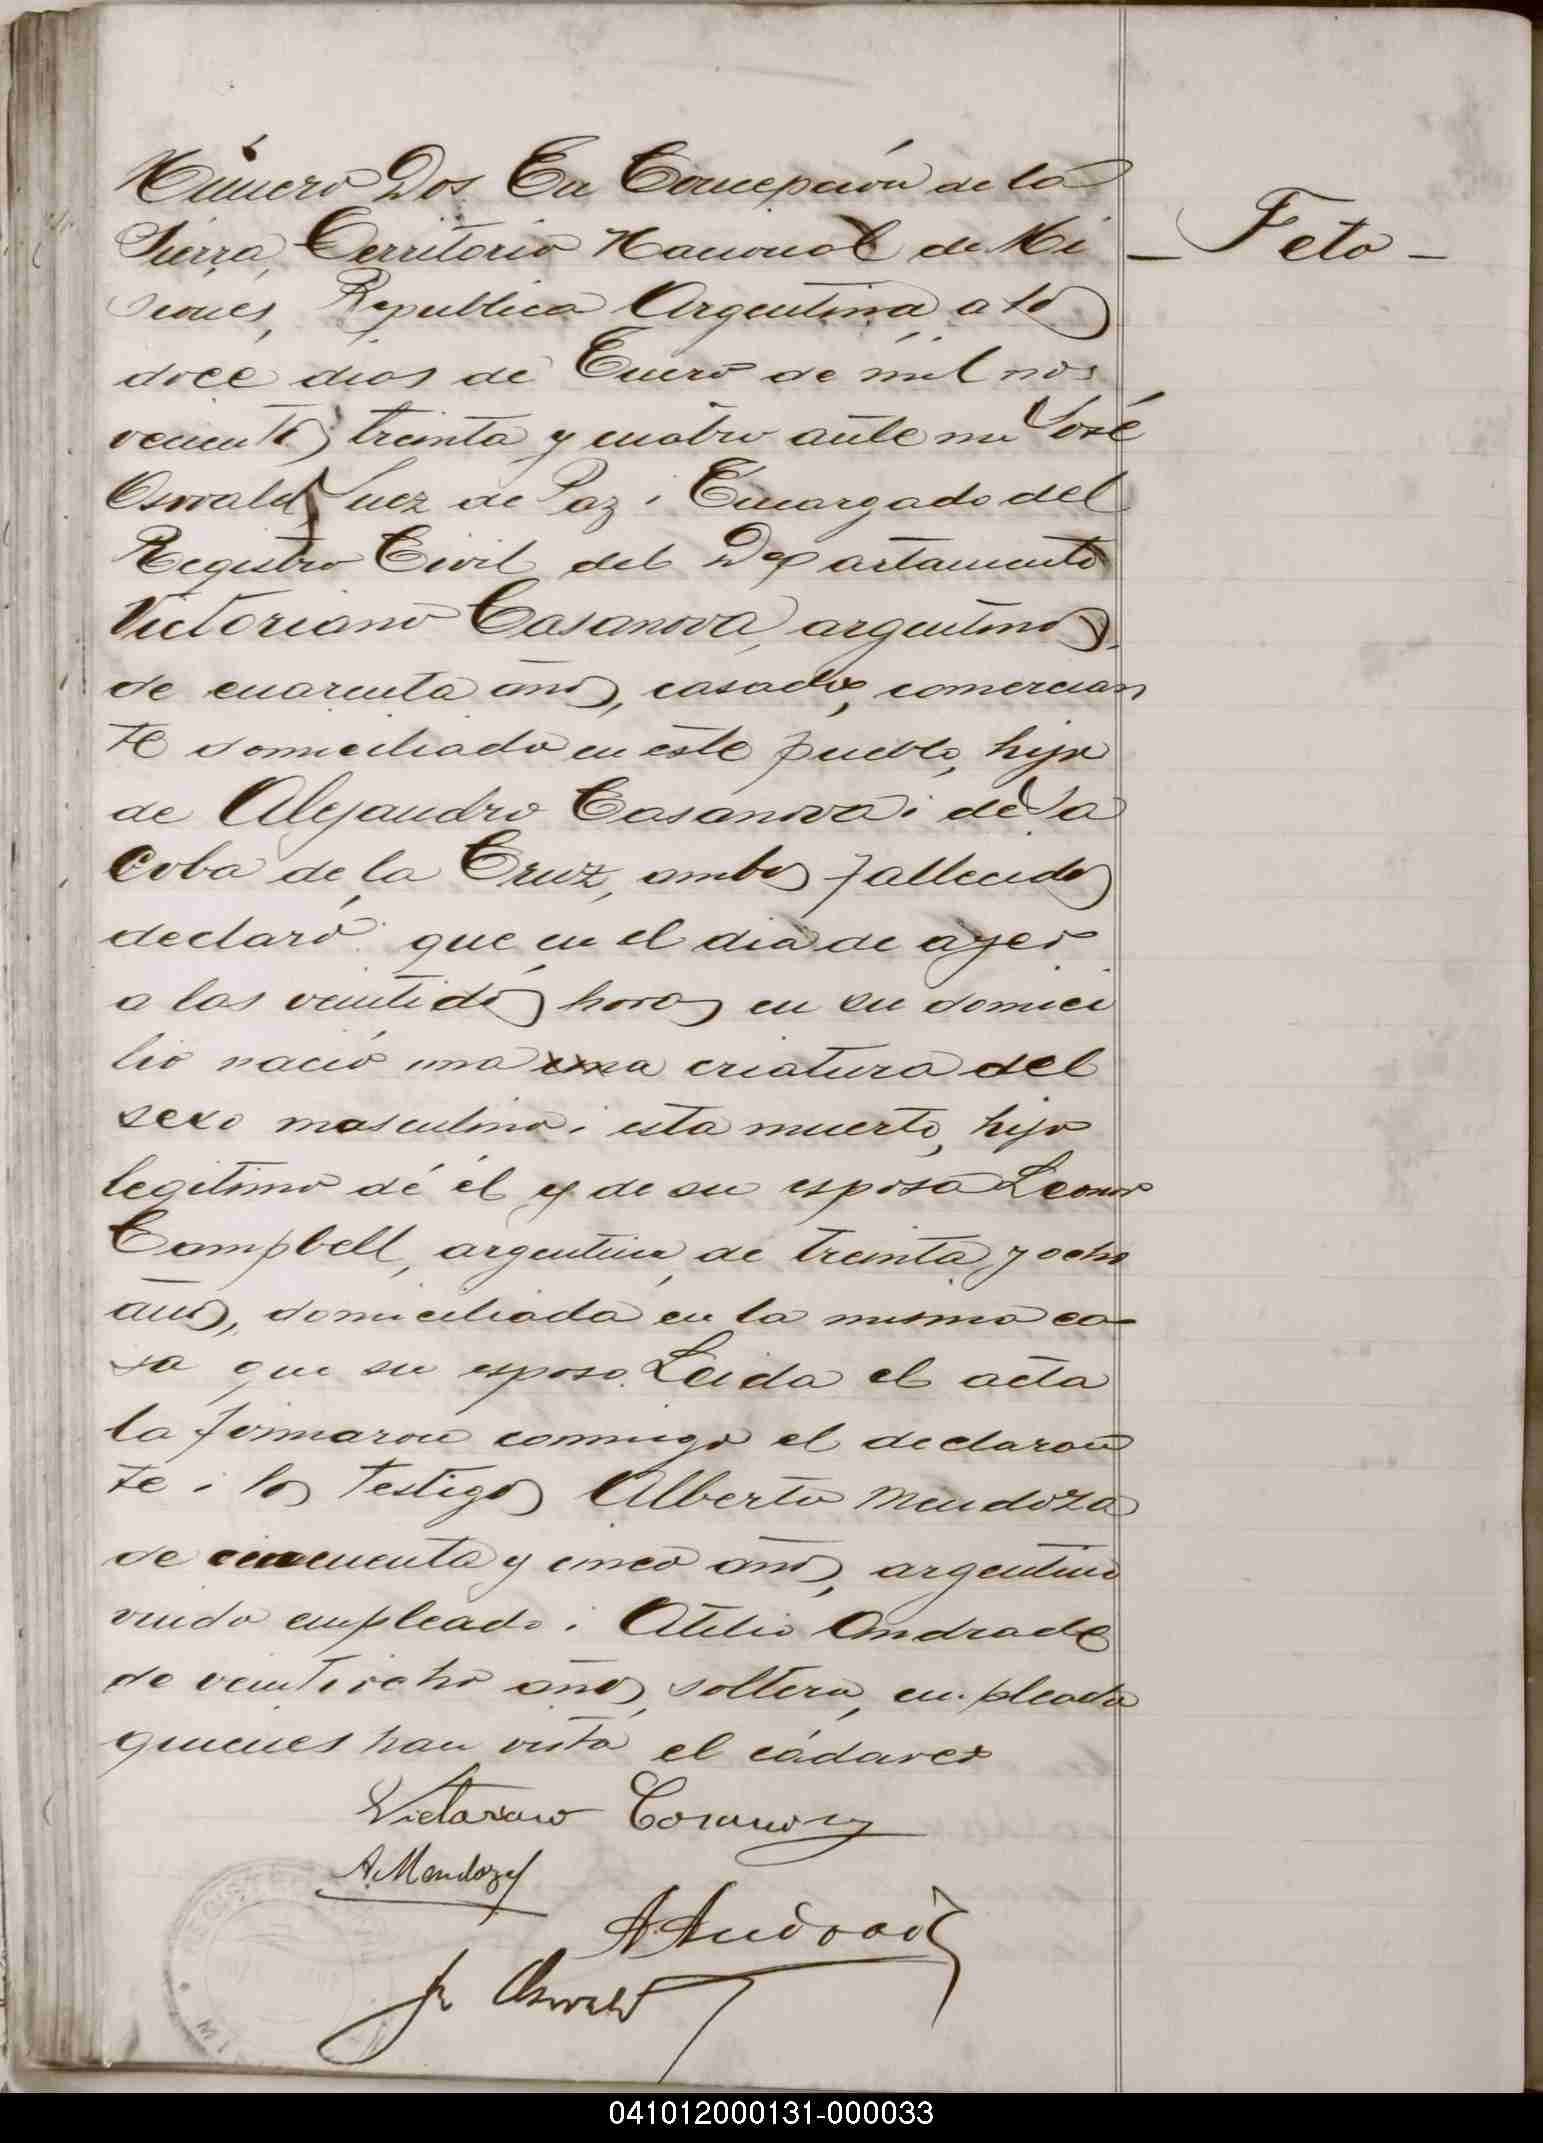 Número Dos En Concepción de la
Sierra, Territorio Nacional de Mi
siones, Republica Argentina a los
doce dias de Enero de mil nos
vecientos treinta y cuatro ante mi José
Oswald, Juez de Paz i Encargado del
Registro Civil del Departamento
Victoriano Casanova, argentino,
de cuarenta años, casado, comercian
te domiciliado en este pueblo, hijo
de Alejandro Casanova i de Ja
coba de la Cruz, ambos fallecidos
declaró: que en el dia de ayer
a las veintidós horas en su domici
lio nació una una criatura del
sexo masculino i esta muerto, hijo
legitimo de él y de su esposa Leonor
Campbell, argentina de treinta y ocho
años, domiciliada en la misma ca-
sa que su esposo. Leida el acta
la firmaron conmigo el declaran
te i los testigos Alberto Mendoza
de cincuenta y cinco años, argentino
viudo empleado i Atilio Andrade
de veintiocho años, soltero, empleado
quienes han visto el cádaver
Victoriano Casanova
A. Mendoza
A. Andrade
J. Oswald
- Feto -
041012000131-000033